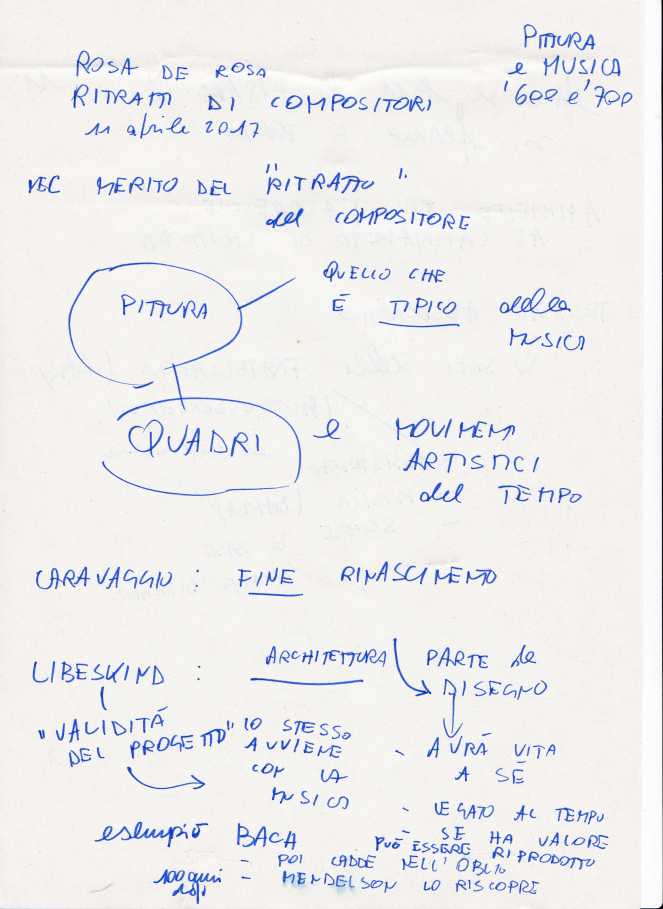 PITTURA
e MUSICA
'600 e '700
ROSA DE ROSA
RITRATTI DI COMPOSITORI
11 aprile 2017
NEL MERITO DEL "RITRATTO"
del COMPOSITORE
PITTURA
QUELLO CHE
È TIPICO della
MUSICA
QUADRI e MOVIMENTI
ARTISTICI
del TEMPO
CARAVAGGIO : FINE RINASCIMENTO
LIBESKIND : ARCHITETTURA
PARTE da
DISEGNO
"VALIDITÀ
DEL PROGETTO"
LO STESSO
AVVIENE
CON LA
MUSICA
- AVRÀ VITA
A SÉ
- LEGATO AL TEMPO
- SE HA VALORE
PUÒ ESSERE RIPRODOTTO
esempio BACA
- POI CADDE NELL'OBLIO
100 anni
dopo
- MENDELSON LO RISCOPRE